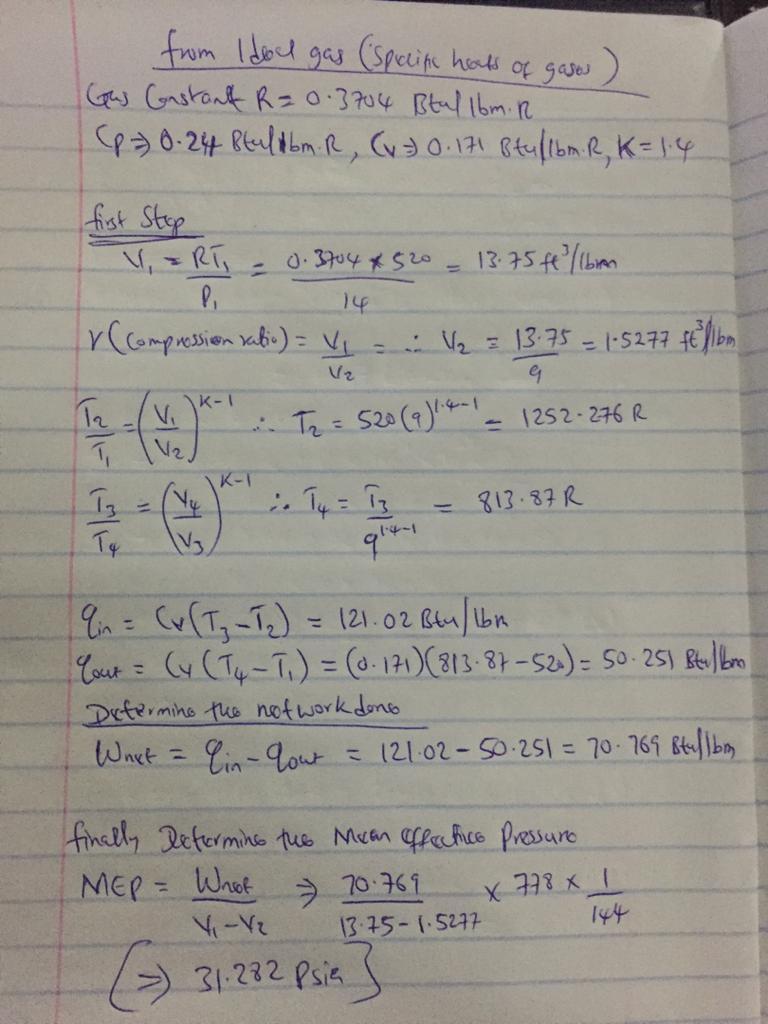 from Ideal gas (Specific heats of gases)
Gas Constant R = 0.3704 Btu/lbm.R
Cp ⇒ 0.24 Btu/lbm.R, Cv ⇒ 0.171 Btu/lbm.R, K = 1.4
first Step
V₁ = RT₁/P₁ = 0.3704 * 520/14 = 13.75 ft³/lbm
r (compression ratio) = V₁/V₂ = ∴ V₂ = 13.75/9 = 1.5277 ft³/lbm
T₂/T₁ = (V₁/V₂)^K-1 ∴ T₂ = 520(9)^1.4-1 = 1252.276 R
T₃/T₄ = (V₄/V₃)^K-1 ∴ T₄ = T₃/9^1.4-1 = 813.87 R
qin = Cv(T₃-T₂) = 121.02 Btu/lbm
qout = Cv(T₄-T₁) = (0.171)(813.87-520) = 50.251 Btu/lbm
Determine the net work done
Wnet = qin-qout = 121.02 - 50.251 = 70.769 Btu/lbm
finally Determine the Mean effective Pressure
MEP = Wnet/V₁-V₂ ⇒ 70.769/13.75-1.5277 × 778 × 1/144
[⇒ 31.282 Psia]